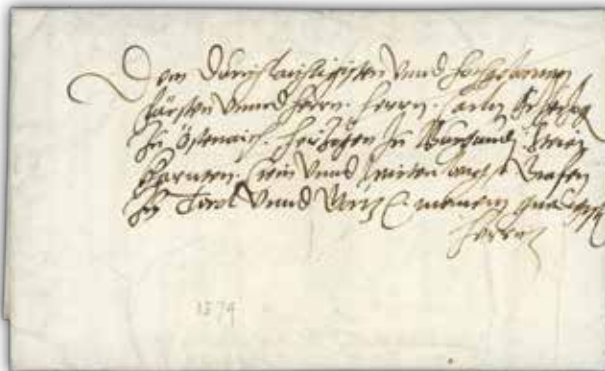 Dem Durchlauchtigisten Unnd Hochgebornen
Fürsten Unnd Herrn. Herrn. Carln Ertzhertzog
Zu Össterreich. Hertzogen Zu Burgundj. Steir
Kharnten. Crain Unnd Grafen
Zu Tirol Unnd Görtz &c. meinem
Herrn
1574